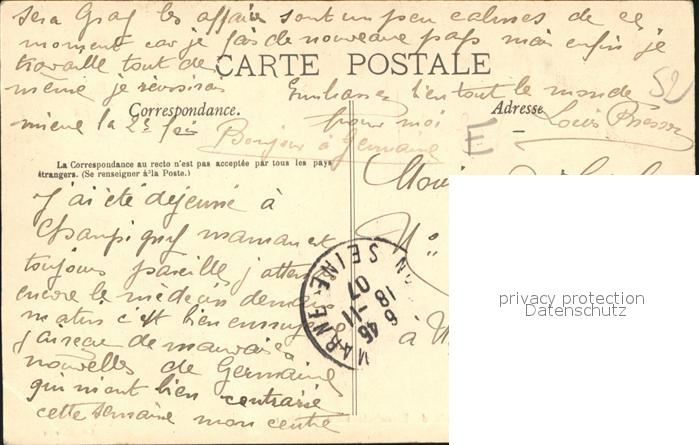 sera Gray les affaires sont un peu calmes de ce
moment car je fais de nouveau pas mais enfin je
travaille tout de
même je réussirai
mieux la 2e fois
CARTE POSTALE
Embrasse bien tout le monde
pour moi
Louis
52
Correspondance.
Adresse
Bonjour à Germaine
E
La Correspondance au recto n'est pas acceptée par tous les pays
étrangers. (Se renseigner à la Poste.)
J'ai été déjeuné à
Champigny maman est
toujours pareille j'attens
encore le médecin demain
matin c'est bien ennuyeux
j'ai reçu de mauvaises
nouvelles de Germaine
qui m'ont bien contrarié
cette semaine mon
N
SEINE
MARNE
18
6 45
11
07
à
privacy protection
Datenschutz